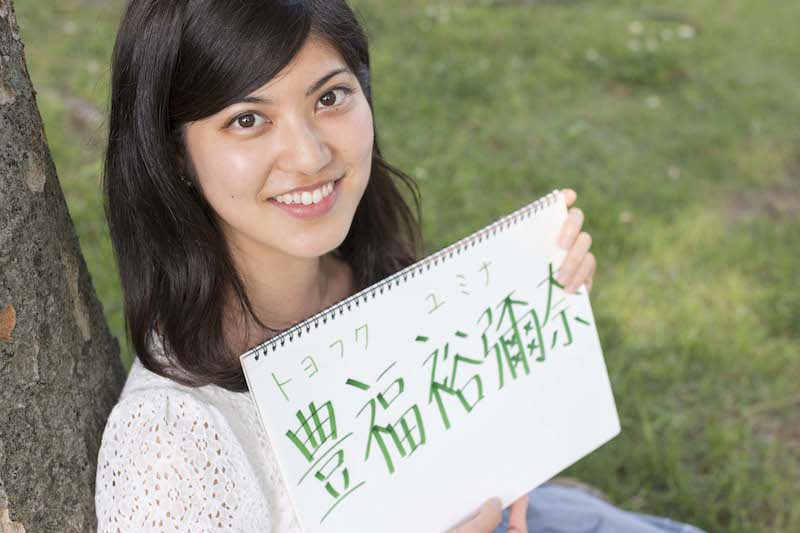 トヨフク　ユミナ
豊福裕彌奈